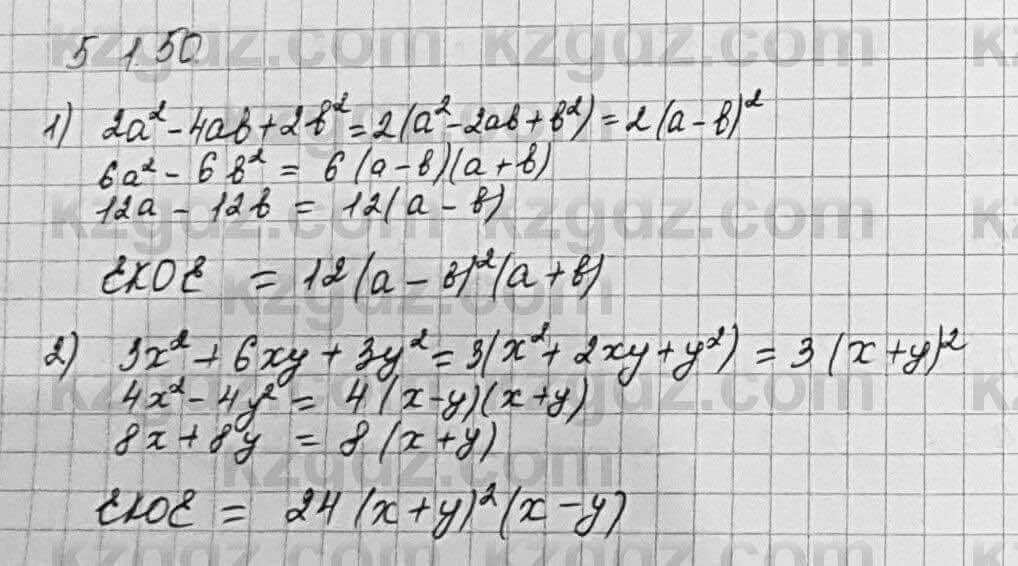 5 1.50
kzgdz.com
1) 2a² - 4ab + 2b² = 2(a² - 2ab + b²) = 2(a - b)²
6a² - 6b² = 6(a - b)(a + b)
12a - 12b = 12(a - b)
ЕКОЕ = 12(a - b)²(a + b)
2) 3x² + 6xy + 3y² = 3(x² + 2xy + y²) = 3(x + y)²
4x² - 4y² = 4(x - y)(x + y)
8x + 8y = 8(x + y)
ЕКОЕ = 24(x + y)²(x - y)